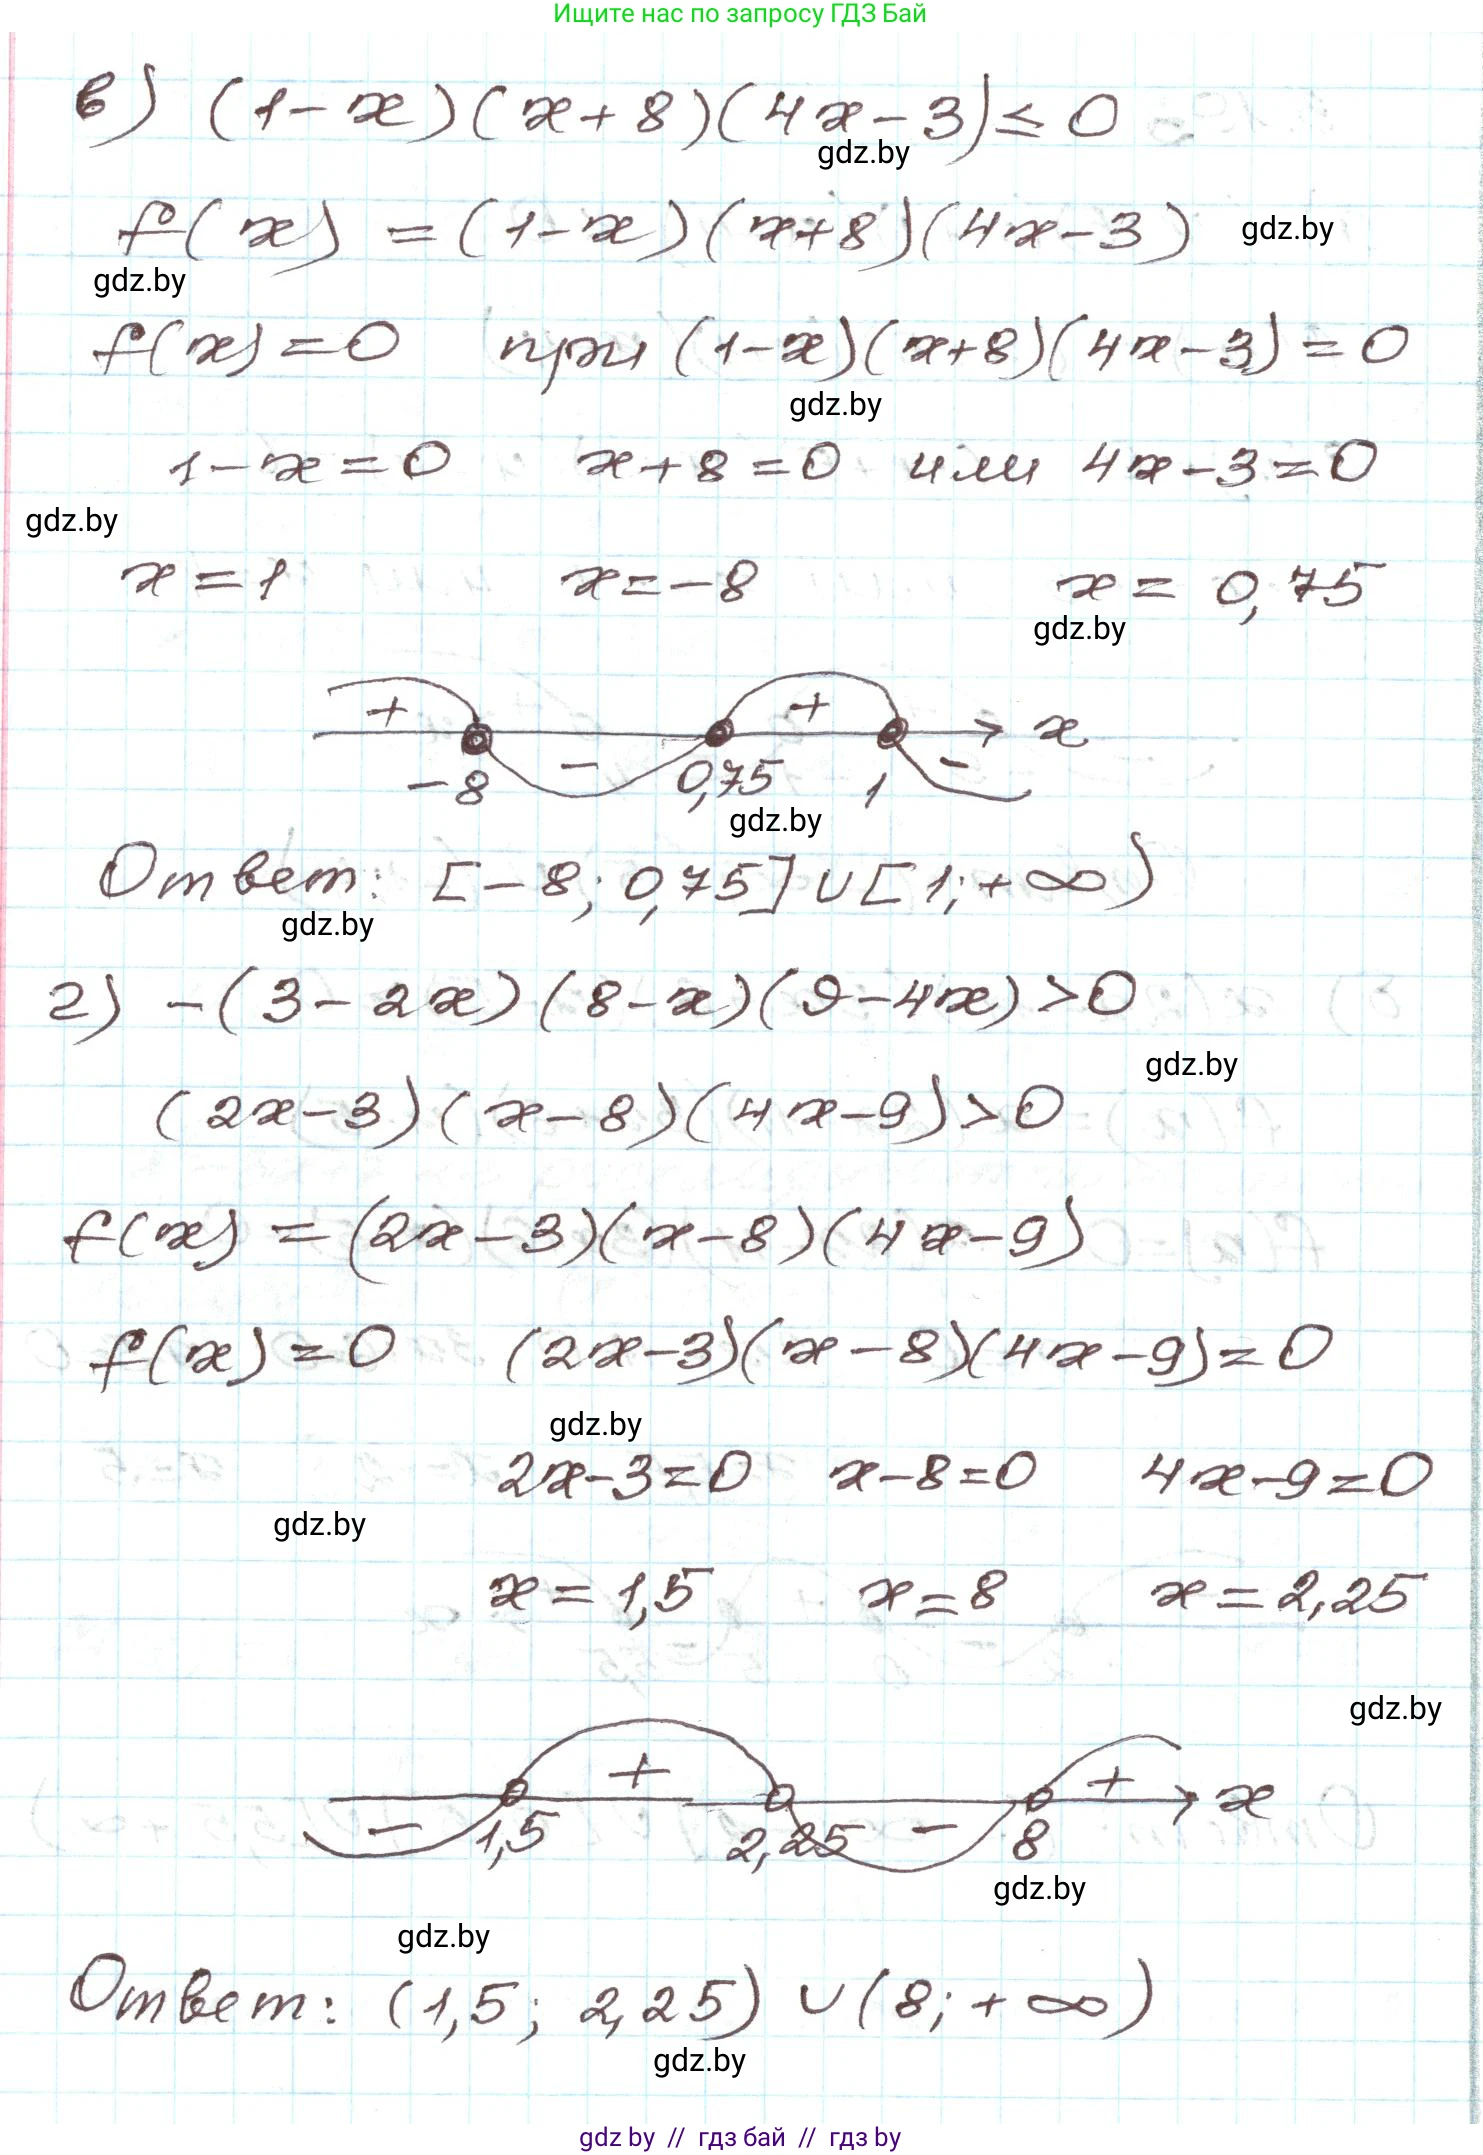 Ищите нас по запросу ГДЗ Бай
в) (1-x)(x+8)(4x-3)≤0
gdz.by
f(x) = (1-x)(x+8)(4x-3)
gdz.by
gdz.by
f(x)=0 при (1-x)(x+8)(4x-3)=0
gdz.by
1-x=0 x+8=0 или 4x-3=0
gdz.by
x=1 x=-8 x= 0,75
gdz.by
+ - + - x
-8 0,75 1
gdz.by
Ответ: [-8; 0,75]∪[1;+∞)
gdz.by
г) -(3-2x)(8-x)(9-4x)>0
gdz.by
(2x-3)(x-8)(4x-9)>0
f(x) = (2x-3)(x-8)(4x-9)
f(x)=0 (2x-3)(x-8)(4x-9)=0
gdz.by
2x-3=0 x-8=0 4x-9=0
gdz.by
x=1,5 x=8 x=2,25
gdz.by
- + - + x
1,5 2,25 8
gdz.by
gdz.by
Ответ: (1,5; 2,25) ∪(8;+∞)
gdz.by
gdz by // гдз бай // гдз by